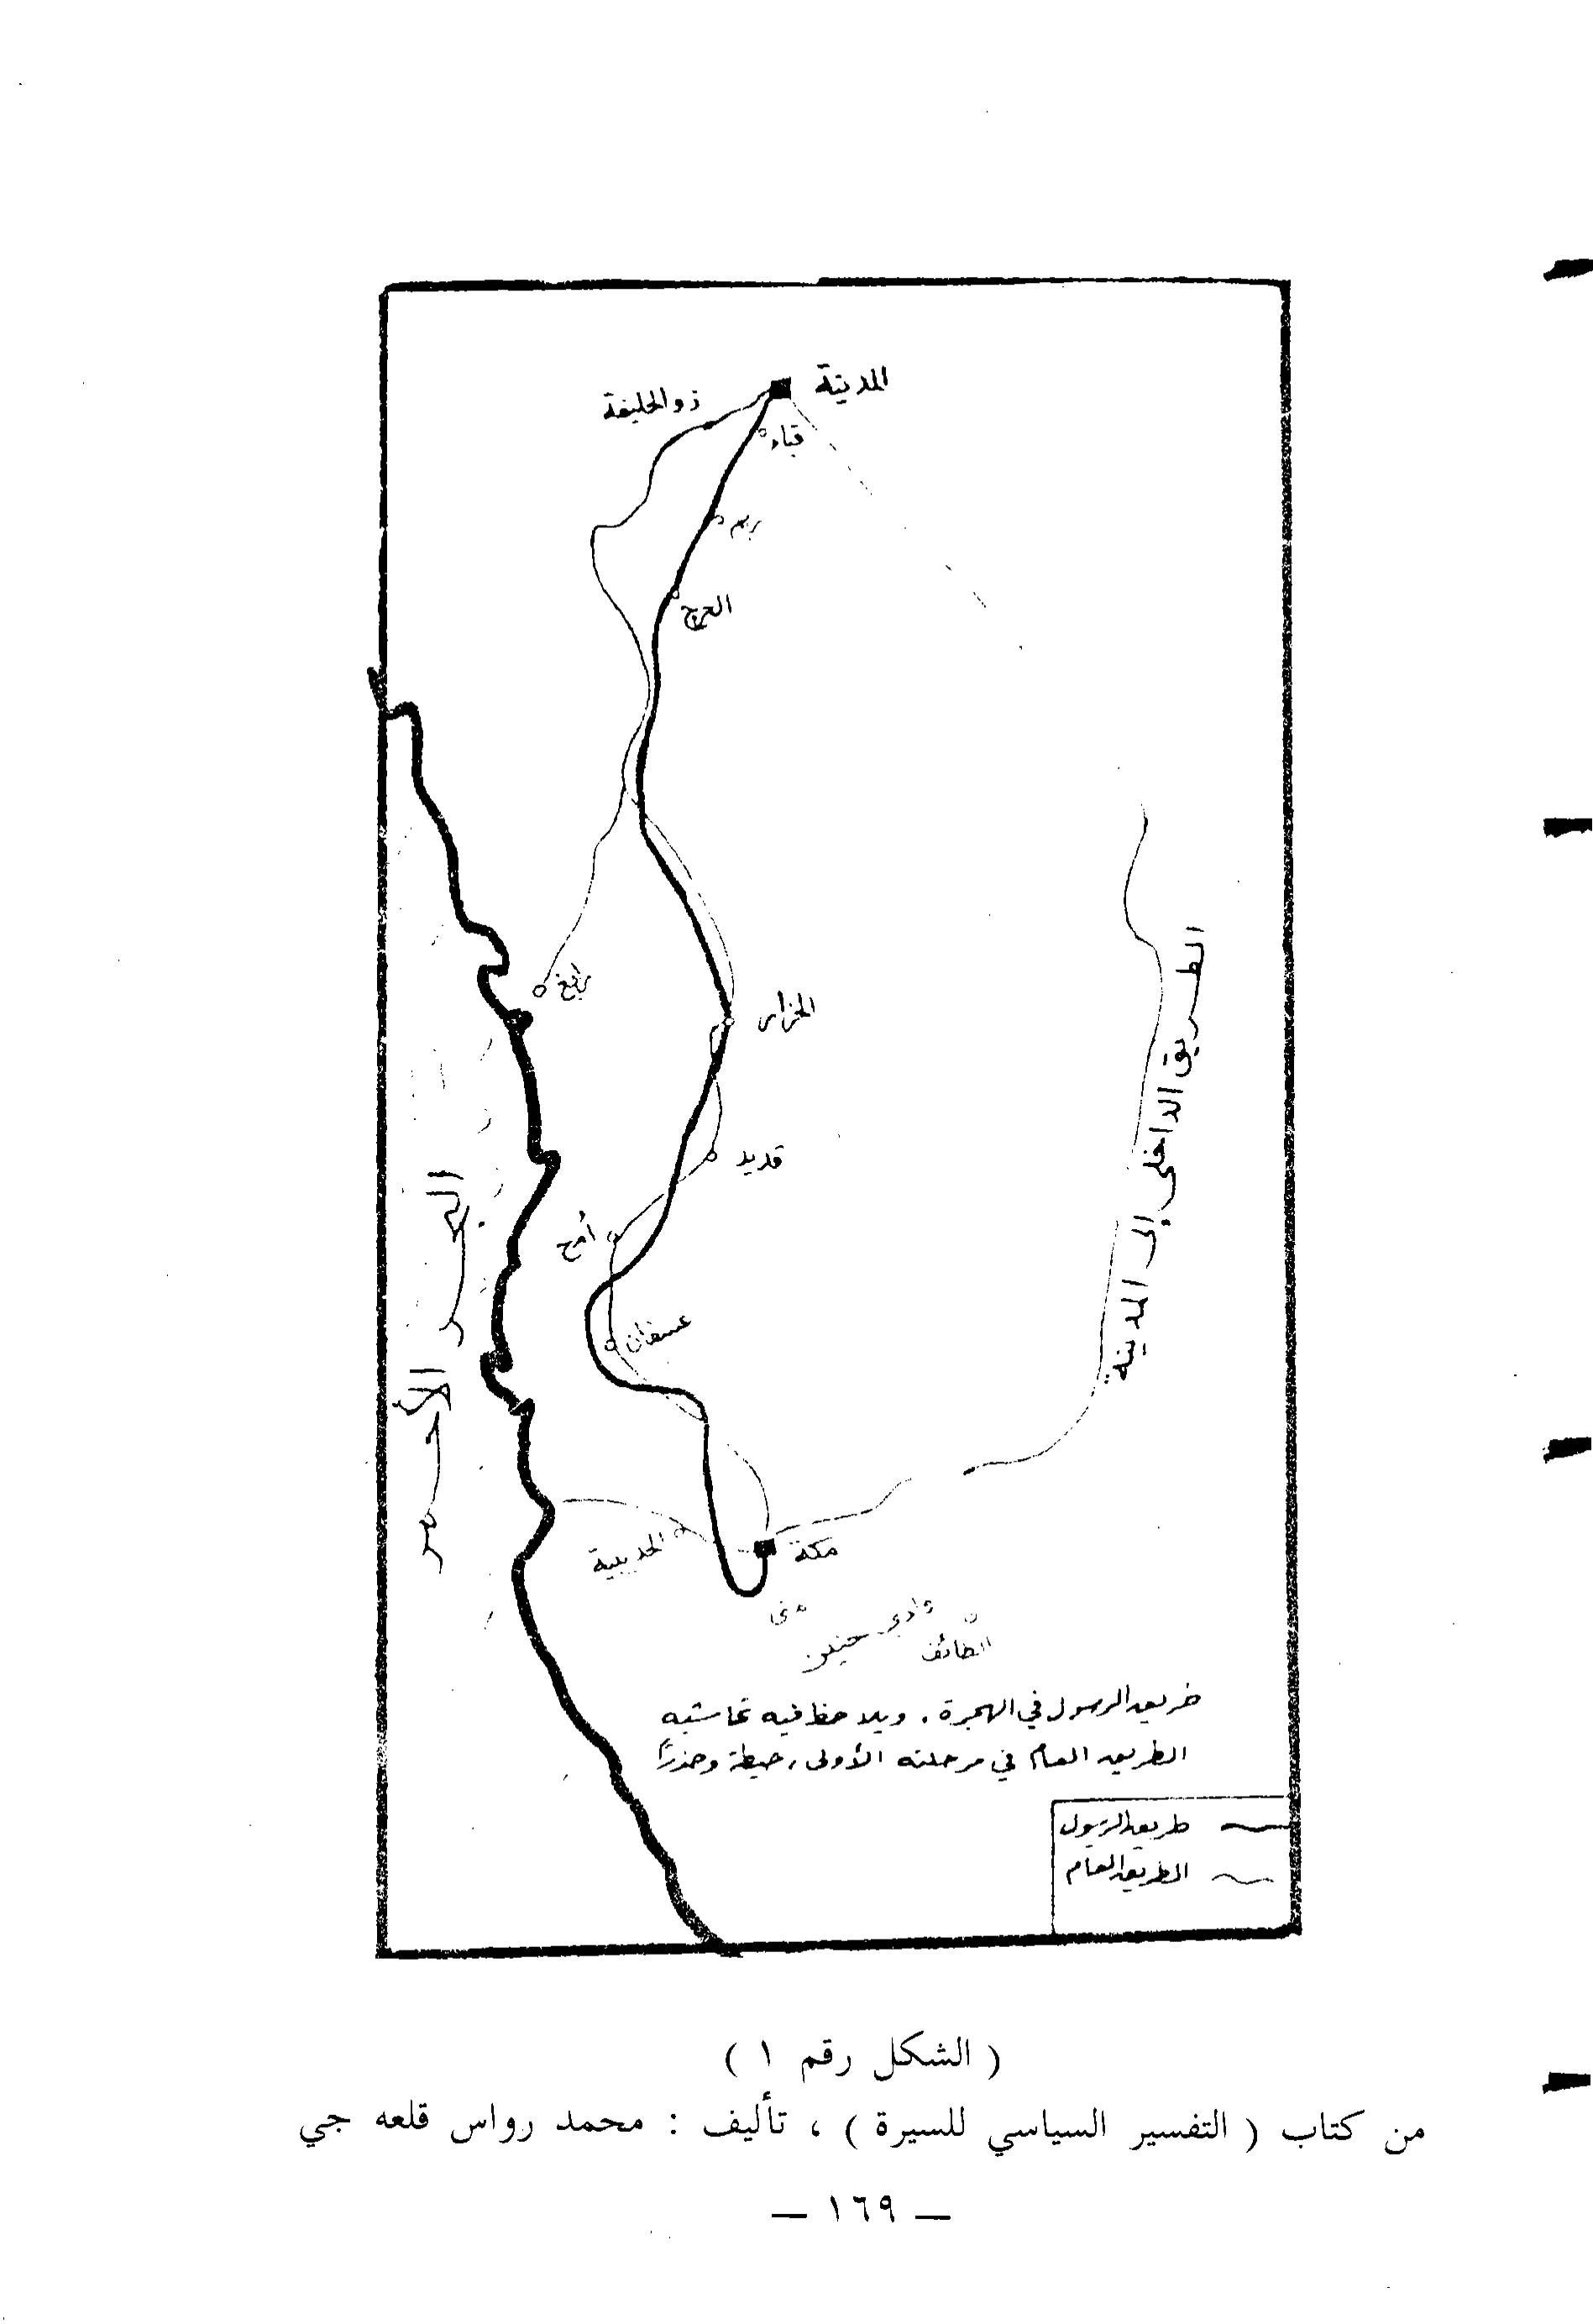 المدينة
ذو الحليفة
قباء
ريم
العرج
رابغ
الخرار
قديد
أمج
عسفان
الطريق الداخلي إلى المدينة
البحر الأحمر
الحديبية
مكة
منى
وادي حنين
الطائف
طريق الرسول في الهجرة. ويلاحظ فيه تحاشيه
الطريق العام في مرحلته الأولى، حيطة وحذرًا
طريق الرسول
الطريق العام
( الشكل رقم ١ )
من كتاب ( التفسير السياسي للسيرة ) ، تأليف : محمد رواس قلعه جي
— ١٦٩ —